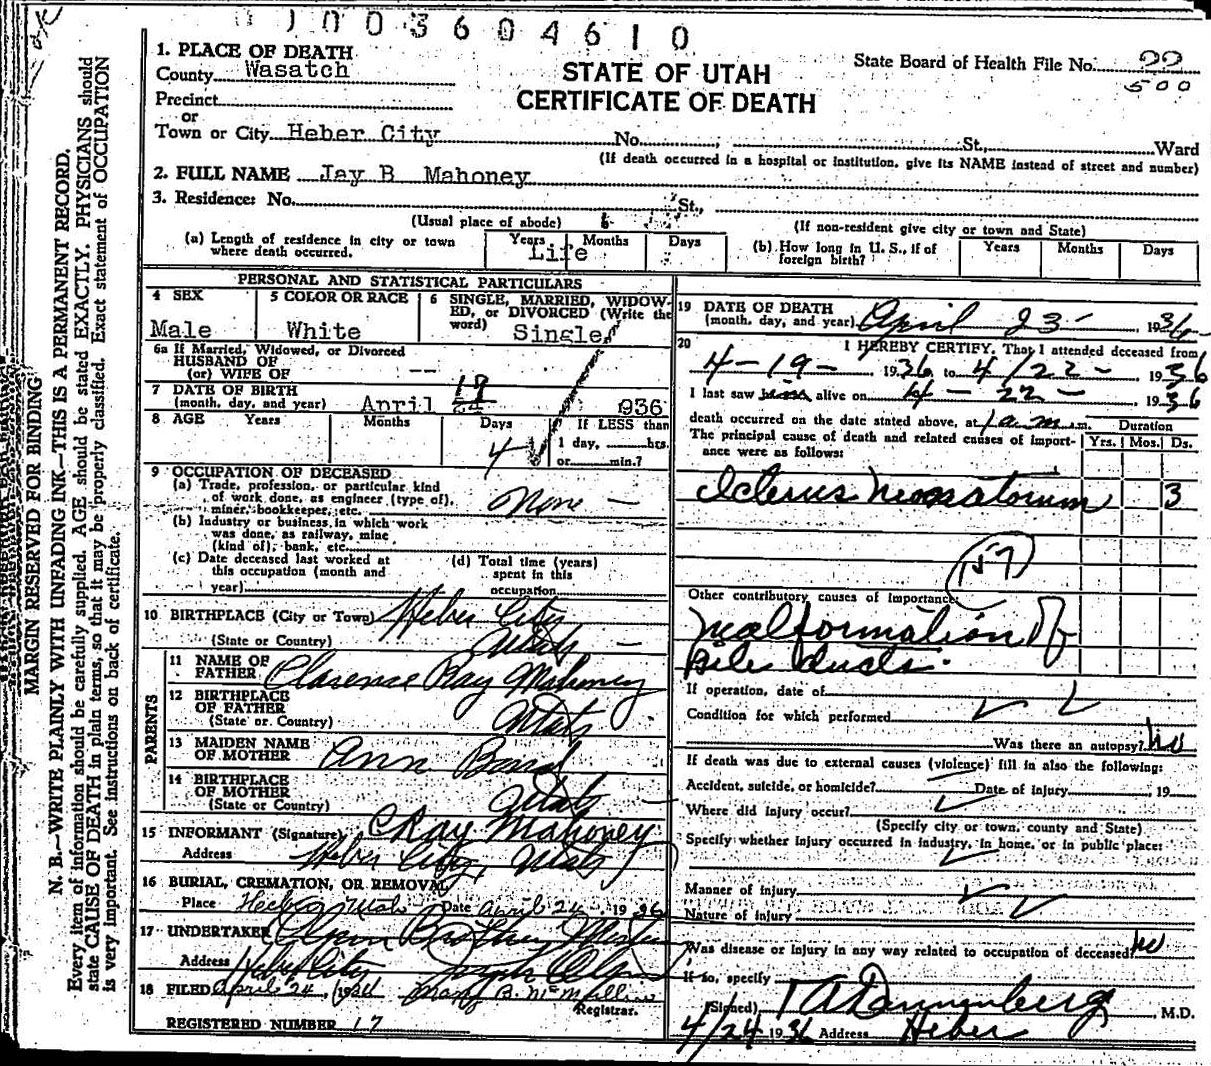 003604610
1. PLACE OF DEATH
County Wasatch
STATE OF UTAH
CERTIFICATE OF DEATH
State Board of Health File No. 22
500
Precinct
or
Town or City Heber City No. St., Ward
(If death occurred in a hospital or institution, give its NAME instead of street and number)
2. FULL NAME Jay B Mahoney
3. Residence: No. St.,
(Usual place of abode) (If non-resident give city or town and State)
(a) Length of residence in city or town where death occurred. Years Months Days
Life
(b) How long in U. S., if of foreign birth? Years Months Days
PERSONAL AND STATISTICAL PARTICULARS
4 SEX
Male
5 COLOR OR RACE
White
6 SINGLE, MARRIED, WIDOW-
ED, or DIVORCED (Write the
word) Single
6a If Married, Widowed, or Divorced
HUSBAND OF
(or) WIFE OF --
7 DATE OF BIRTH
(month, day, and year) April 19 1936
8 AGE Years Months Days If LESS than
4 1 day, hrs.
or min.?
9 OCCUPATION OF DECEASED
(a) Trade, profession, or particular kind
of work done, as engineer (type of),
miner, bookkeeper, etc. None
(b) Industry or business in which work
was done, as railway, mine
(kind of), bank, etc.
(c) Date deceased last worked at
this occupation (month and
year)
(d) Total time (years)
spent in this
occupation
10 BIRTHPLACE (City or Town) Heber City
(State or Country) Utah
PARENTS
11 NAME OF
FATHER Clarence Ray Mahoney
12 BIRTHPLACE
OF FATHER
(State or Country) Utah
13 MAIDEN NAME
OF MOTHER Ann
14 BIRTHPLACE
OF MOTHER
(State or Country) Utah
15 INFORMANT (Signature) C Ray Mahoney
Address Heber City, Utah
16 BURIAL, CREMATION, OR REMOVAL
Place Heber Utah Date April 24 1936
17 UNDERTAKER
Address Heber City
18 FILED April 24, 1936 Mary B. McMillin
Registrar.
REGISTERED NUMBER 17
19 DATE OF DEATH
(month, day, and year) April 23 - , 1936
20 I HEREBY CERTIFY, That I attended deceased from
4-19- 1936 to 4/22- , 1936
I last saw him alive on 4-22- , 1936
death occurred on the date stated above, at 1 a m m. Duration
The principal cause of death and related causes of import-
ance were as follows: Yrs. Mos. Ds.
Icterus Neonatorum 3
157
Other contributory causes of importance:
Malformation Of
bile ducts.
If operation, date of
Condition for which performed
Was there an autopsy? no
If death was due to external causes (violence) fill in also the following:
Accident, suicide, or homicide? Date of injury , 19
Where did injury occur?
(Specify city or town, county and State)
Specify whether injury occurred in industry, in home, or in public place:
Manner of injury
Nature of injury
Was disease or injury in any way related to occupation of deceased? no
If so, specify
(Signed) Dannenberg, M.D.
4/24 1936 Address Heber
MARGIN RESERVED FOR BINDING
N. B.—WRITE PLAINLY WITH UNFADING INK—THIS IS A PERMANENT RECORD.
Every item of information should be carefully supplied. AGE should be stated EXACTLY. PHYSICIANS should
state CAUSE OF DEATH in plain terms, so that it may be properly classified. Exact statement of OCCUPATION
is very important. See instructions on back of certificate.